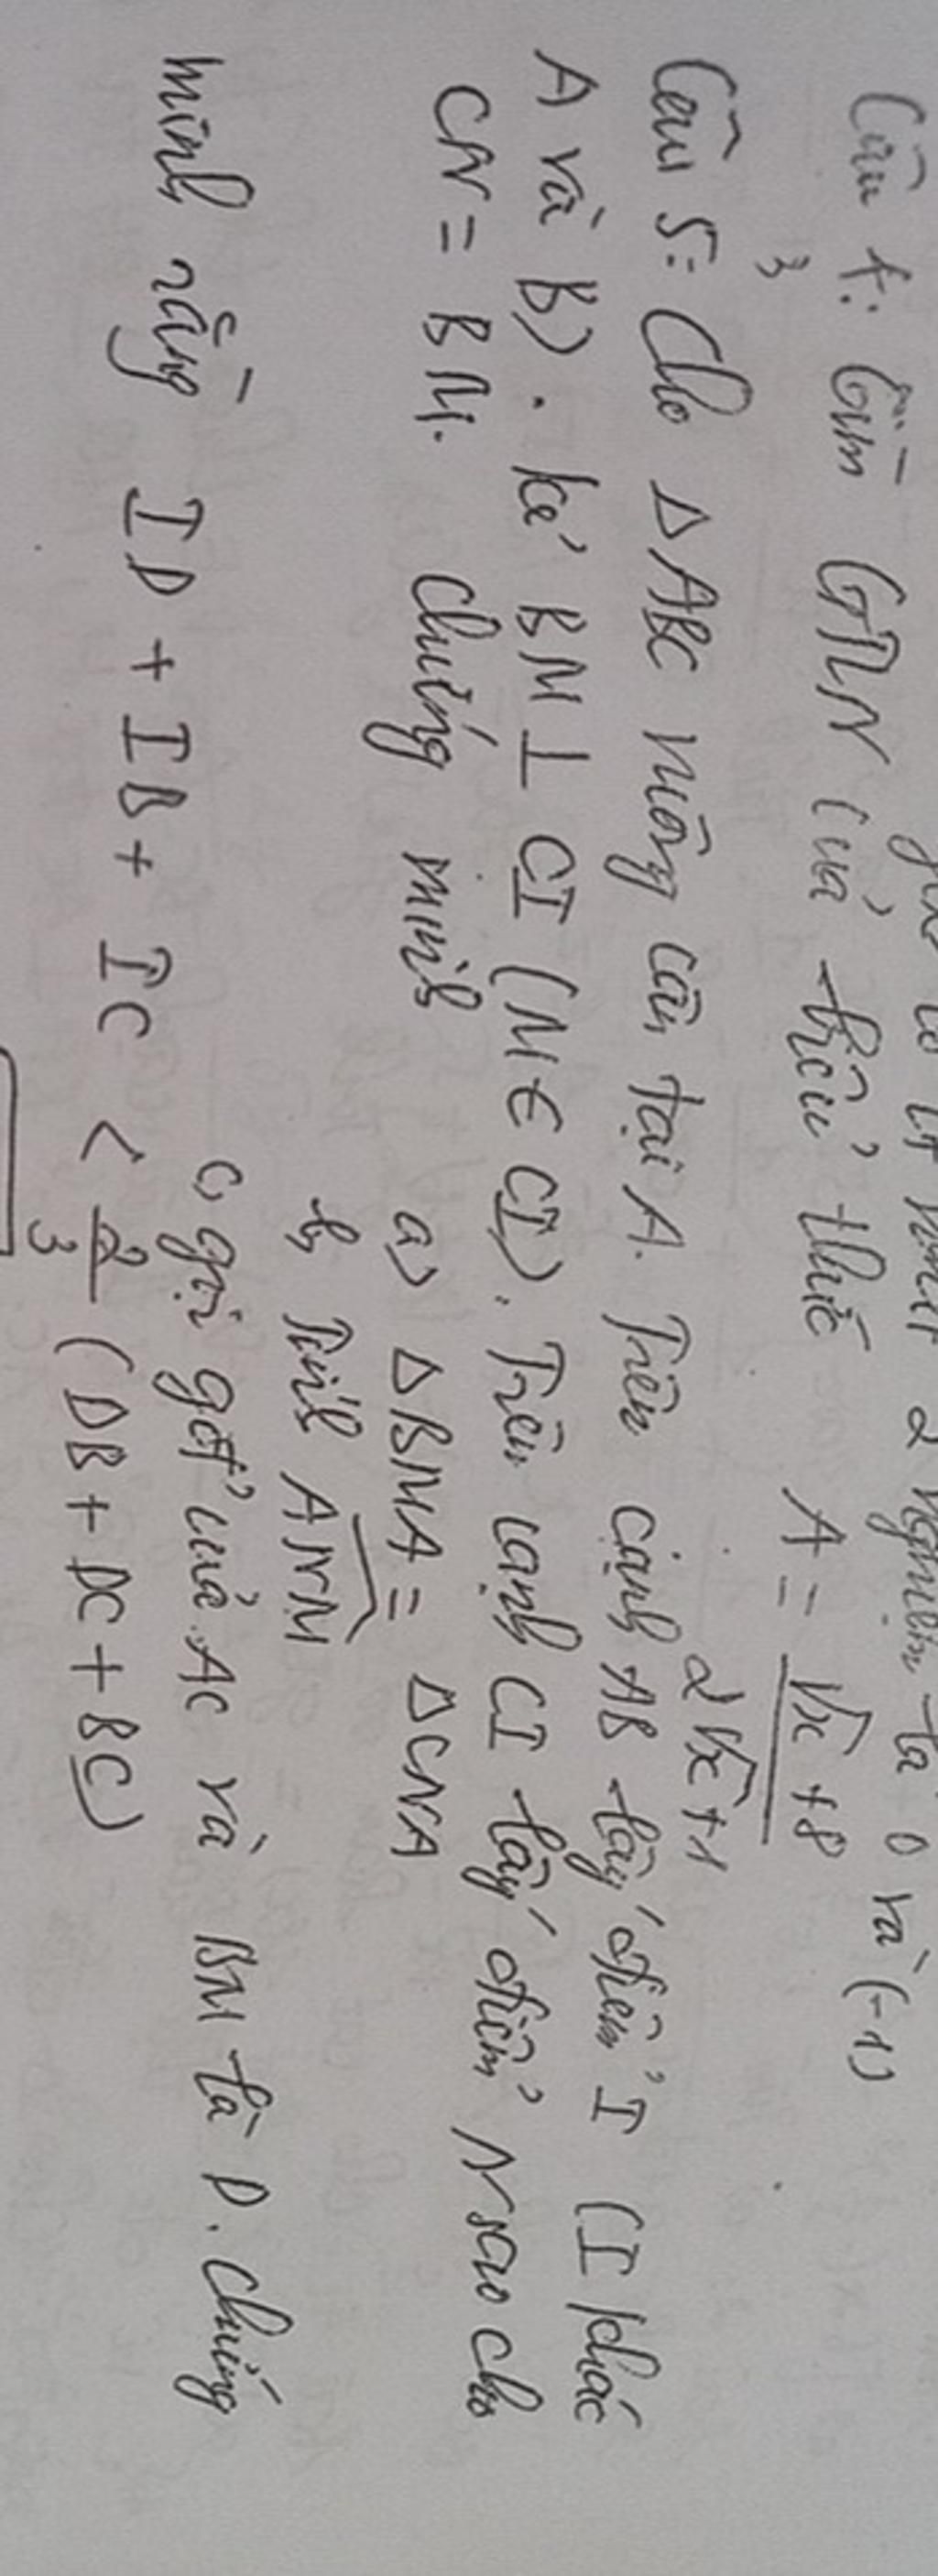 2 nghiệm là 0 và (-1)
Câu 4: Tìm GTLN của biểu thức A = √x + 8
3
2√x + 1
Câu 5: Cho Δ ABC vuông cân tại A. Trên cạnh AB lấy điểm I (I khác
A và B). kẻ BM ⊥ CI (M ∈ CI). Trên cạnh CI lấy điểm N sao cho
CN = BM. Chứng minh a) Δ BMA = Δ CNA
b, Tính ANM
c, gọi gđ của AC và BM là D. Chứng
minh rằng ID + IB + IC < 2/3 (DB + DC + BC)